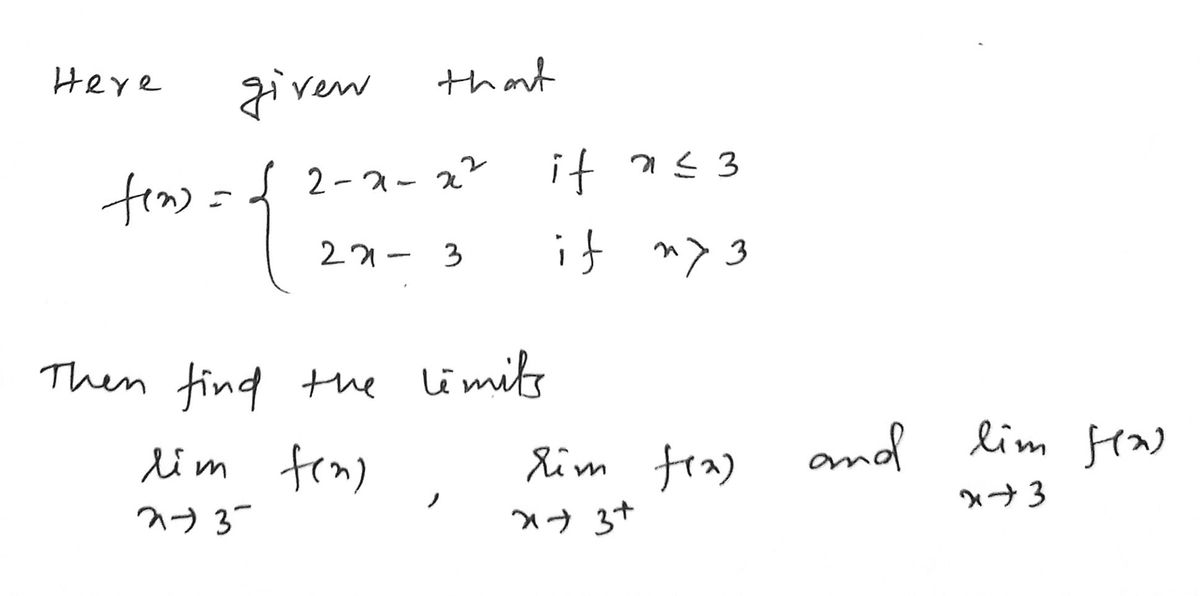 Here given that
f(x) = { 2 - x - x² if x ≤ 3
2x - 3 if x > 3
Then find the limits
lim f(x) , lim f(x) and lim f(x)
x → 3⁻ x → 3⁺ x → 3